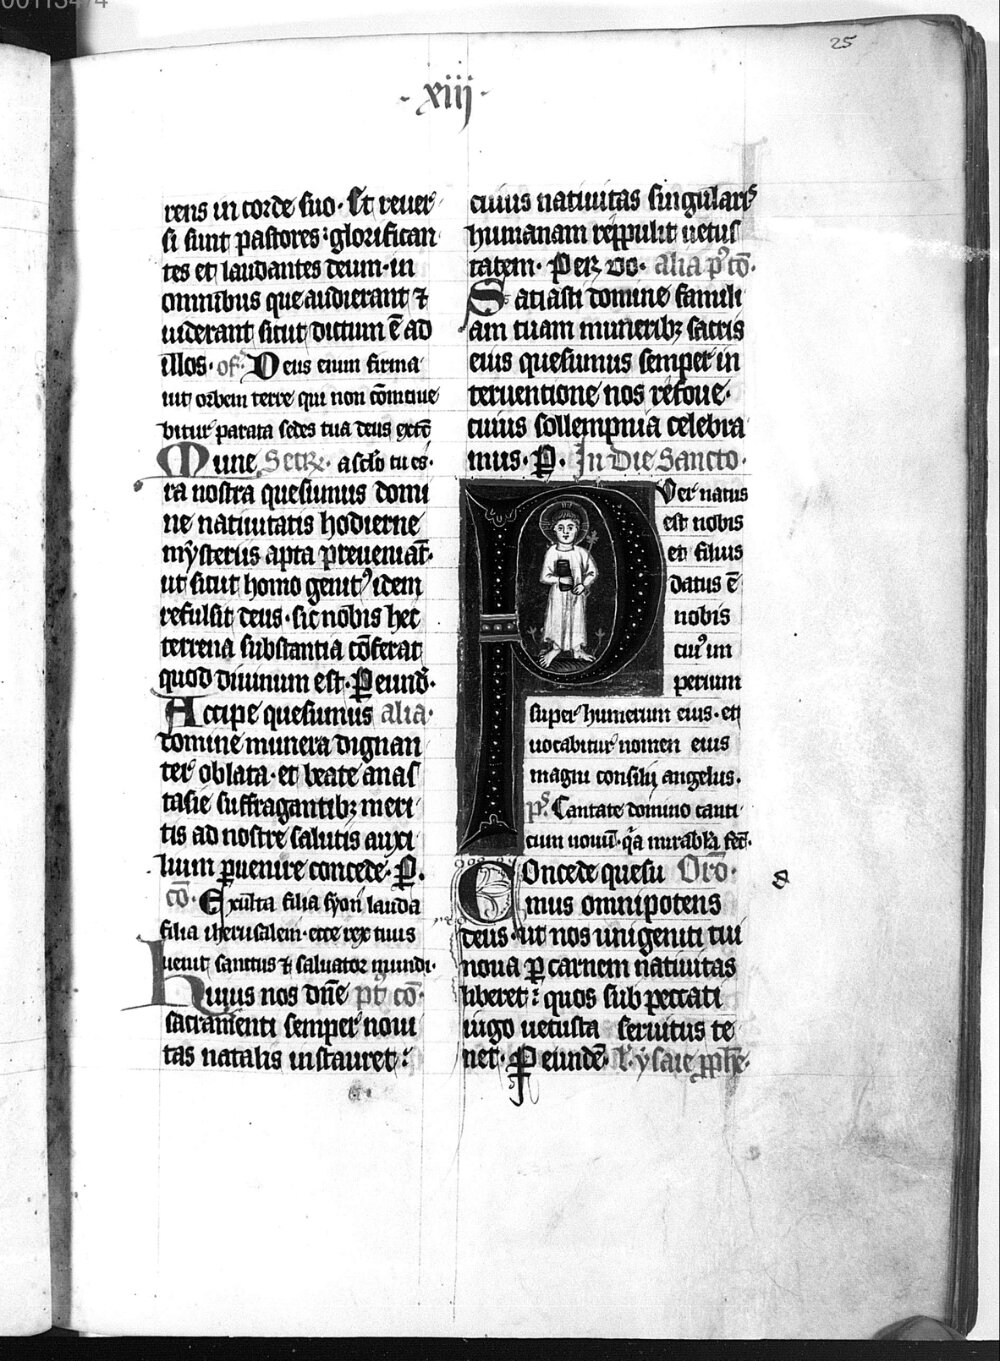 00113474
25
·xiij·
rens in corde suo· Et reuer
si sunt pastores: glorifican
tes et laudantes deum· in
omnibus que audierant ⁊
uiderant sicut dictum ē ad
illos· of̄· Deus enim firma
uit orbem terre qui non cōmoue
bitur parata sedes tua deus ex
Mune Secr̄· a sclo tu es·
ra nostra quesumus domi
ne natiuitatis hodierne
mysteriis apta proueniāt·
ut sicut homo genitꝰ idem
refulsit deus· sic nobis hec
terrena substantia cōferat
quod diuinum est· Ꝑ eund̄·
Accipe quesumus alia·
domine munera dignan
ter oblata· et beate anas
tasie suffragantibꝫ meri
tis ad nostre salutis auxi
lium ꝓuenire concede· Ꝑ·
cō· Exulta filia syon lauda
filia iherusalem· ecce rex tuus
uenit sanctus ⁊ saluator mundi·
Huius nos dn̄e pꝰ cō·
sacramenti semper noui
tas natalis instauret:
cuius natiuitas singularis
humanam reppulit uetus
tatem· Per. do· alia pꝰ cō·
Satiasti domine famili
am tuam muneribꝫ sacris
eius quesumus semper in
teruentione nos refoue·
cuius sollempnia celebra
mus· Ꝑ· In Die Sancto·
Puer natus
est nobis
et filius
datus ē
nobis
cuiꝰ im
perium
super humerum eius· et
uocabitur nomen eius
magni consilij angelus·
ps̄ Cantate domino canti
cum nouū· qa mirabilia fec̄·
Concede quesu Orō·
mus omnipotens
deus· ut nos unigeniti tui
noua ꝑ carnem natiuitas
liberet: quos sub peccati
iugo uetusta seruitus te
net· Ꝑ eundē· ysaie ꝓphe·